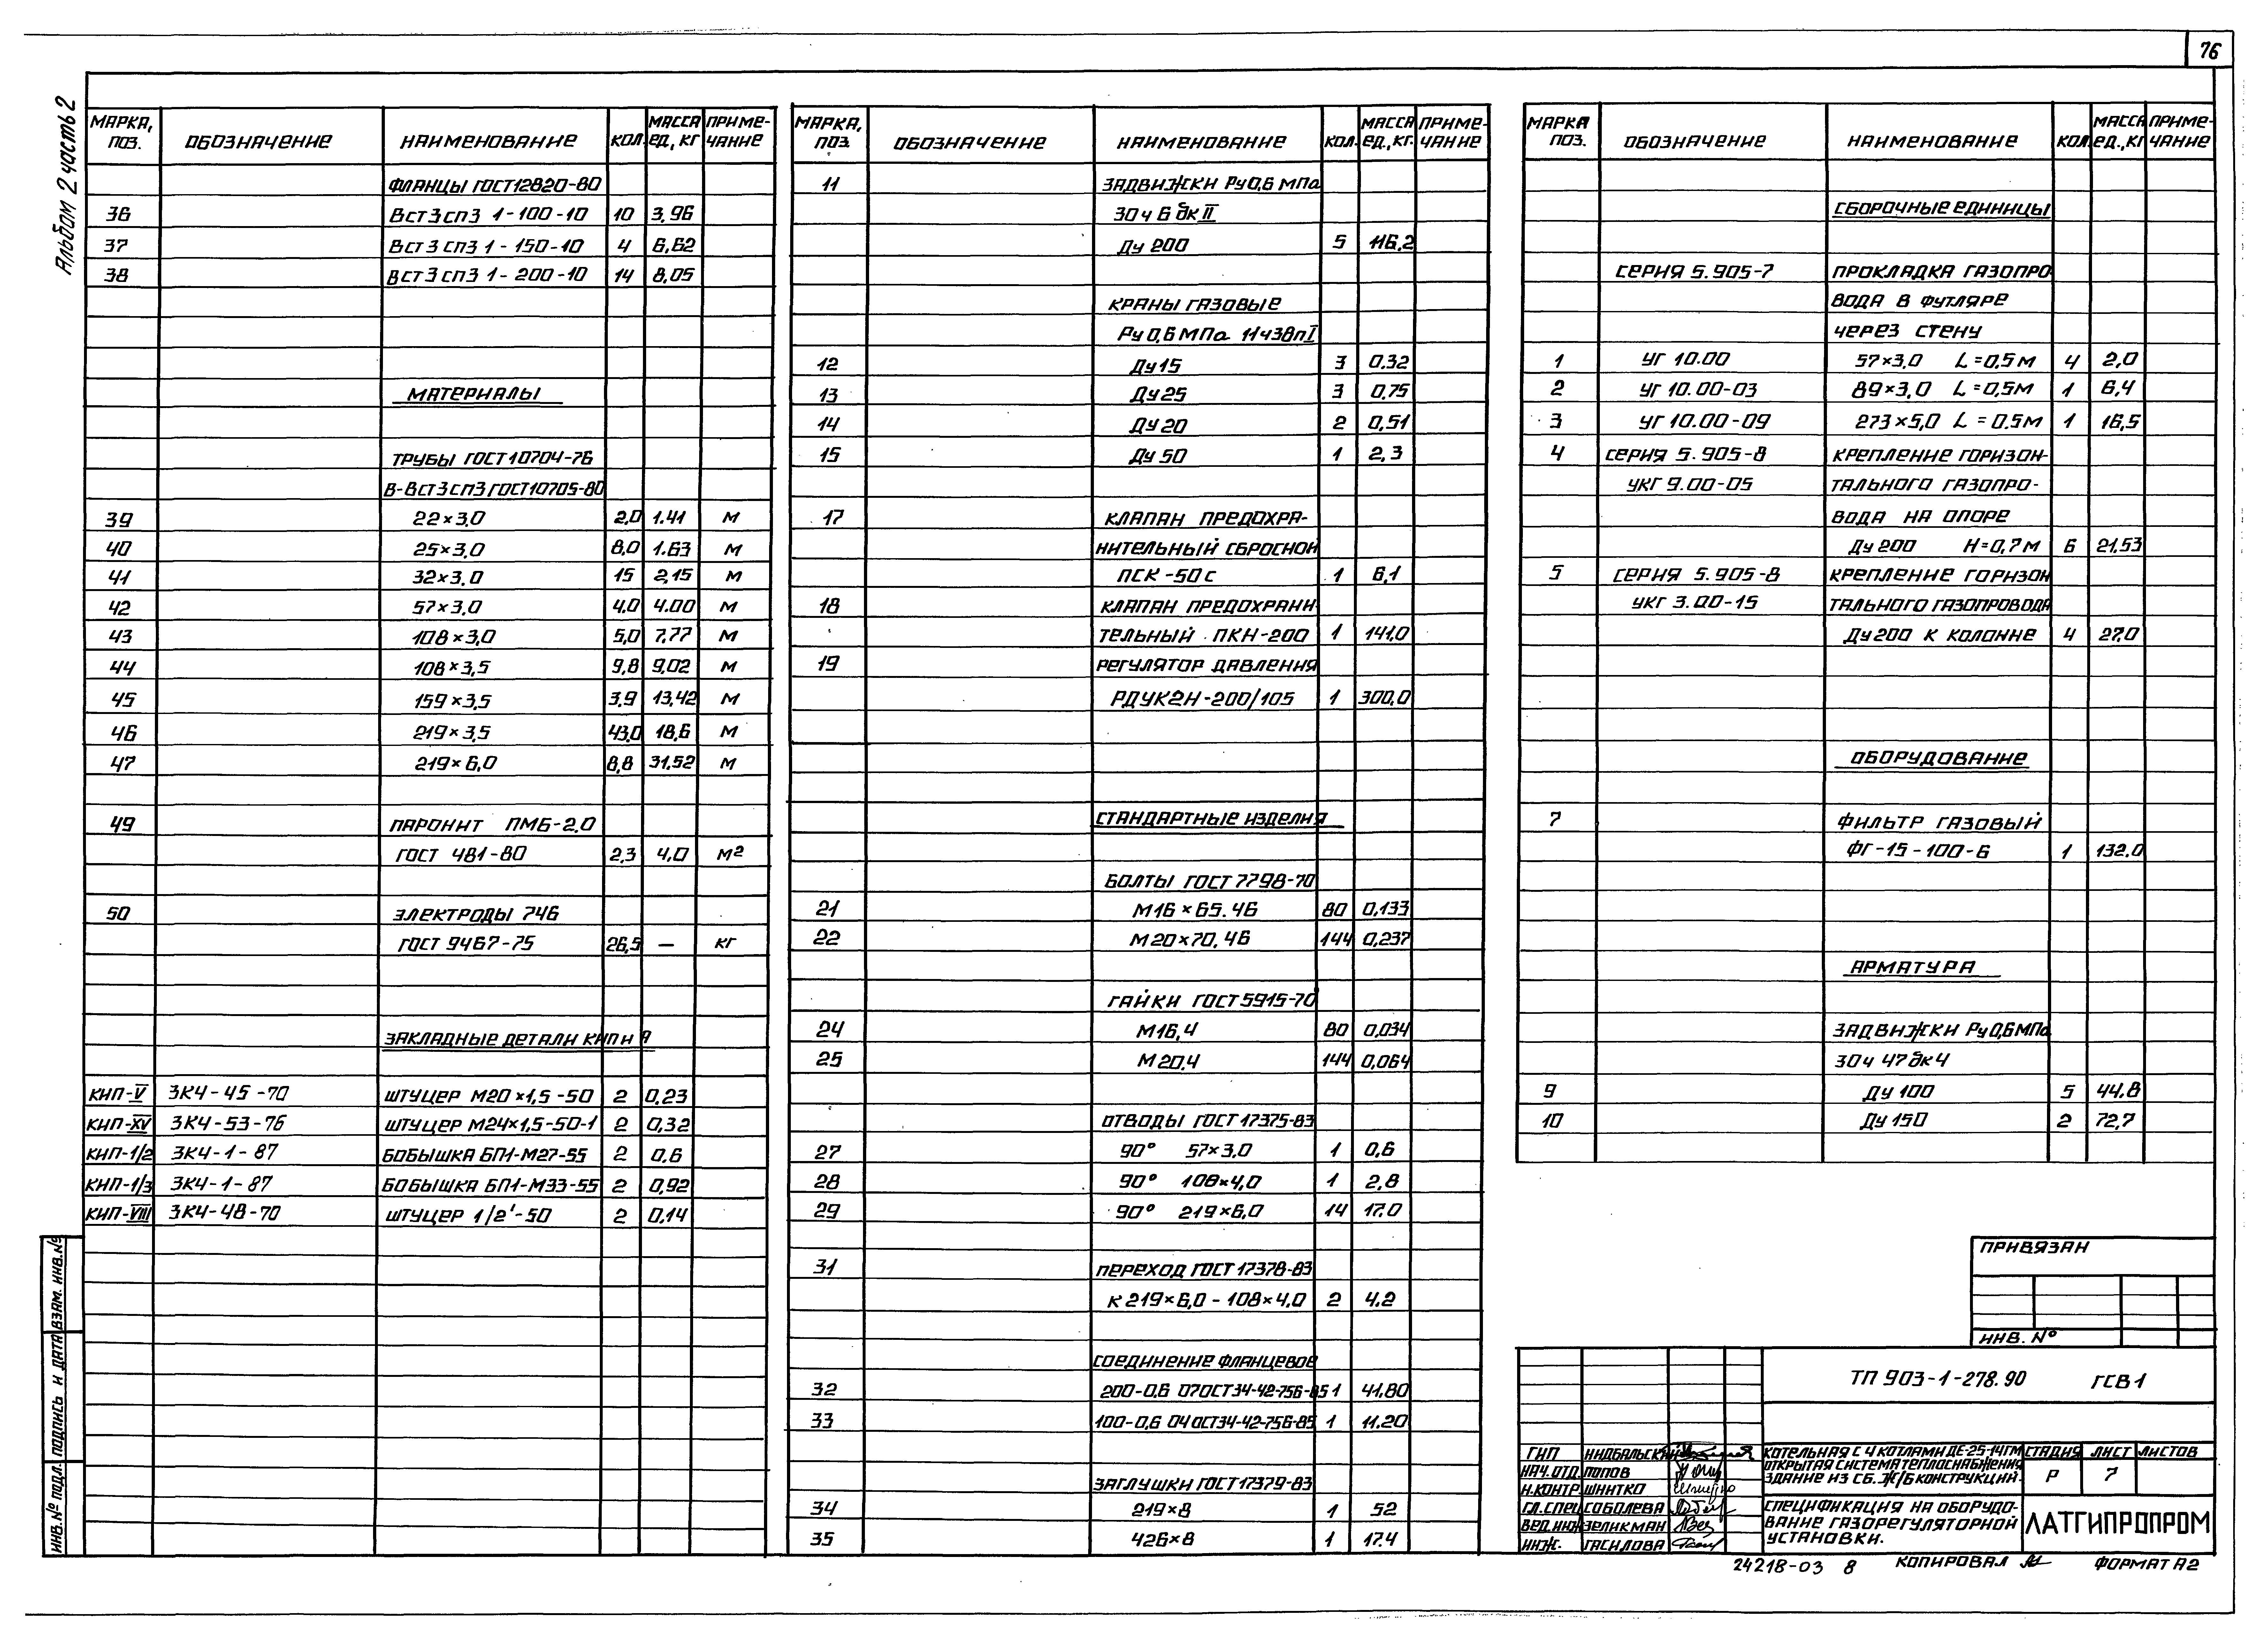 76
Альбом 2 часть 2
МАРКА, ПОЗ. ОБОЗНАЧЕНИЕ НАИМЕНОВАНИЕ КОЛ. МАССА ЕД., КГ ПРИМЕ-ЧАНИЕ
ФЛАНЦЫ ГОСТ 12820-80
36 ВСТ3СП3 1-100-10 10 3,96
37 ВСТ3СП3 1-150-10 4 6,62
38 ВСТ3СП3 1-200-10 14 8,05
МАТЕРИАЛЫ
ТРУБЫ ГОСТ 10704-76
В-ВСТ3СП3 ГОСТ 10705-80
39 22×3,0 2,0 1.41 М
40 25×3,0 8,0 1.63 М
41 32×3,0 15 2,15 М
42 57×3,0 4,0 4.00 М
43 108×3,0 5,0 7,77 М
44 108×3,5 9,8 9,02 М
45 159×3,5 3,9 13,42 М
46 219×3,5 43,0 18,6 М
47 219×6,0 8,8 31,52 М
49 ПАРОНИТ ПМБ-2,0
ГОСТ 481-80 2,3 4,0 М²
50 ЭЛЕКТРОДЫ Э46
ГОСТ 9467-75 26,5 — КГ
ЗАКЛАДНЫЕ ДЕТАЛИ КИП и А
КИП-V ЗК4-45-70 ШТУЦЕР М20×1,5-50 2 0,23
КИП-XV ЗК4-53-76 ШТУЦЕР М24×1,5-50-1 2 0,32
КИП-1/2 ЗК4-1-87 БОБЫШКА БП1-М27-55 2 0,6
КИП-1/3 ЗК4-1-87 БОБЫШКА БП1-М33-55 2 0,92
КИП-VIII ЗК4-48-70 ШТУЦЕР 1/2'-50 2 0,14
МАРКА, ПОЗ ОБОЗНАЧЕНИЕ НАИМЕНОВАНИЕ КОЛ. МАССА ЕД., КГ. ПРИМЕ-ЧАНИЕ
11 ЗАДВИЖКИ Ру 0,6 МПа
30ч 6 бк II
Ду 200 5 116,2
КРАНЫ ГАЗОВЫЕ
Ру 0,6 МПа 11ч3Вп I
12 Ду 15 3 0.32
13 Ду 25 3 0,75
14 Ду 20 2 0,51
15 Ду 50 1 2,3
17 КЛАПАН ПРЕДОХРА-
НИТЕЛЬНЫЙ СБРОСНОЙ
ПСК-50 С 1 6,1
18 КЛАПАН ПРЕДОХРАНИ-
ТЕЛЬНЫЙ ПКН-200 1 141,0
19 РЕГУЛЯТОР ДАВЛЕНИЯ
РДУК2Н-200/105 1 300,0
СТАНДАРТНЫЕ ИЗДЕЛИЯ
БОЛТЫ ГОСТ 7798-70
21 М16×65.46 80 0,133
22 М20×70,46 144 0,237
ГАЙКИ ГОСТ 5915-70
24 М16,4 80 0,034
25 М20.4 144 0,064
ОТВОДЫ ГОСТ 17375-83
27 90° 57×3,0 1 0,6
28 90° 108×4,0 1 2,8
29 90° 219×6,0 14 17.0
31 ПЕРЕХОД ГОСТ 17378-83
К 219×6,0 - 108×4,0 2 4.2
СОЕДИНЕНИЕ ФЛАНЦЕВОЕ
32 200-0,6 07 ОСТ34-42-756-85 1 41,80
33 100-0,6 04 ОСТ34-42-756-85 1 11.20
ЗАГЛУШКИ ГОСТ 17379-83
34 219×8 1 52
35 426×8 1 17.4
МАРКА ПОЗ. ОБОЗНАЧЕНИЕ НАИМЕНОВАНИЕ КОЛ. МАССА ЕД., КГ ПРИМЕ-ЧАНИЕ
СБОРОЧНЫЕ ЕДИНИЦЫ
СЕРИЯ 5.905-7 ПРОКЛАДКА ГАЗОПРО
ВОДА В ФУТЛЯРЕ
ЧЕРЕЗ СТЕНУ
1 УГ 10.00 57×3,0 L=0,5 М 4 2,0
2 УГ 10.00-03 89×3,0 L=0,5М 1 6,4
3 УГ 10.00-09 273×5,0 L=0.5М 1 16,5
4 СЕРИЯ 5.905-8 КРЕПЛЕНИЕ ГОРИЗОН-
УКГ 9.00-05 ТАЛЬНОГО ГАЗОПРО-
ВОДА НА ОПОРЕ
Ду 200 Н=0,7 М 6 21,53
5 СЕРИЯ 5.905-8 КРЕПЛЕНИЕ ГОРИЗОН
УКГ 3.00-15 ТАЛЬНОГО ГАЗОПРОВОДА
Ду 200 К КОЛОННЕ 4 27,0
ОБОРУДОВАНИЕ
7 ФИЛЬТР ГАЗОВЫЙ
ФГ-15-100-6 1 132,0
АРМАТУРА
ЗАДВИЖКИ Ру 0,6 МПа
30ч 47 бк 4
9 Ду 100 5 44,8
10 Ду 150 2 72,7
ПРИВЯЗАН
ИНВ. №
ТП 903-1-278.90 ГСВ 1
ГИП
НАЧ. ОТД. ПОПОВ
Н.КОНТР ШНИТКО
ГЛ. СПЕЦ СОБОЛЕВА
ВЕД. ИНЖ ЗЕЛИКМАН
ИНЖ. ГАСИЛОВА
КОТЕЛЬНАЯ С 4 КОТЛАМИ ДЕ-25-14ГМ
ОТКРЫТАЯ СИСТЕМА ТЕПЛОСНАБЖЕНИЯ
ЗДАНИЕ ИЗ СБ. Ж/Б КОНСТРУКЦИЙ.
СТАДИЯ ЛИСТ ЛИСТОВ
Р 7
СПЕЦИФИКАЦИЯ НА ОБОРУДО-
ВАНИЕ ГАЗОРЕГУЛЯТОРНОЙ
УСТАНОВКИ.
ЛАТГИПРОПРОМ
24218-03 8 КОПИРОВАЛ ФОРМАТ А2
ВЗАМ. ИНВ.№
ПОДПИСЬ И ДАТА
ИНВ.№ ПОДЛ.